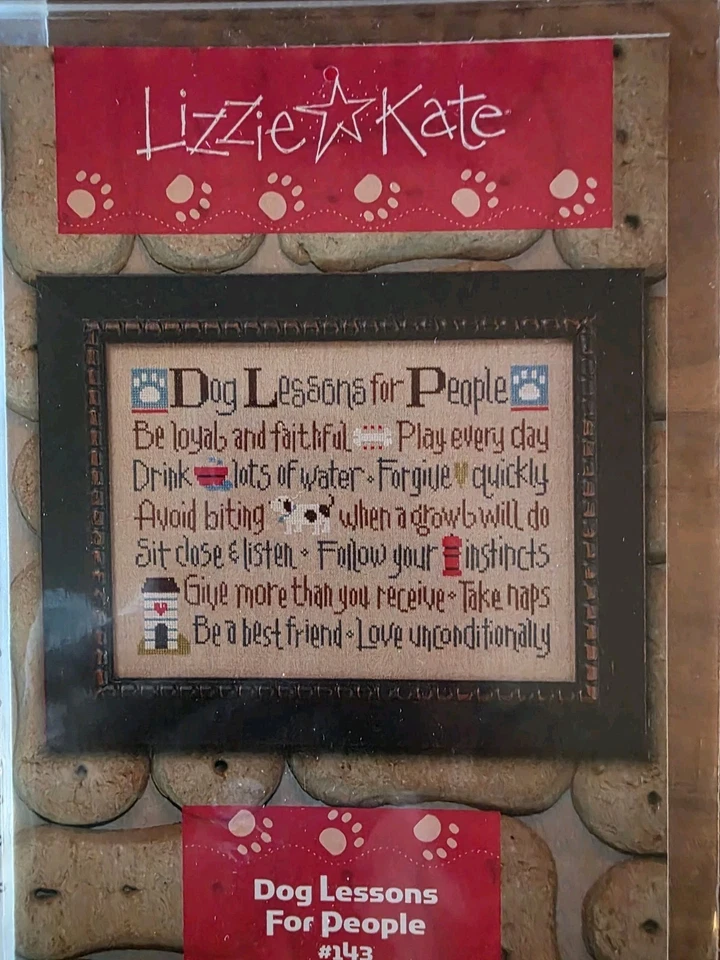 Lizzie Kate
Dog Lessons for People
Be loyal and faithful Play every day
Drink lots of water • Forgive quickly
Avoid biting when a growl will do
Sit close & listen • Follow your instincts
Give more than you receive • Take naps
Be a best friend • Love unconditionally
Dog Lessons
For People
#143